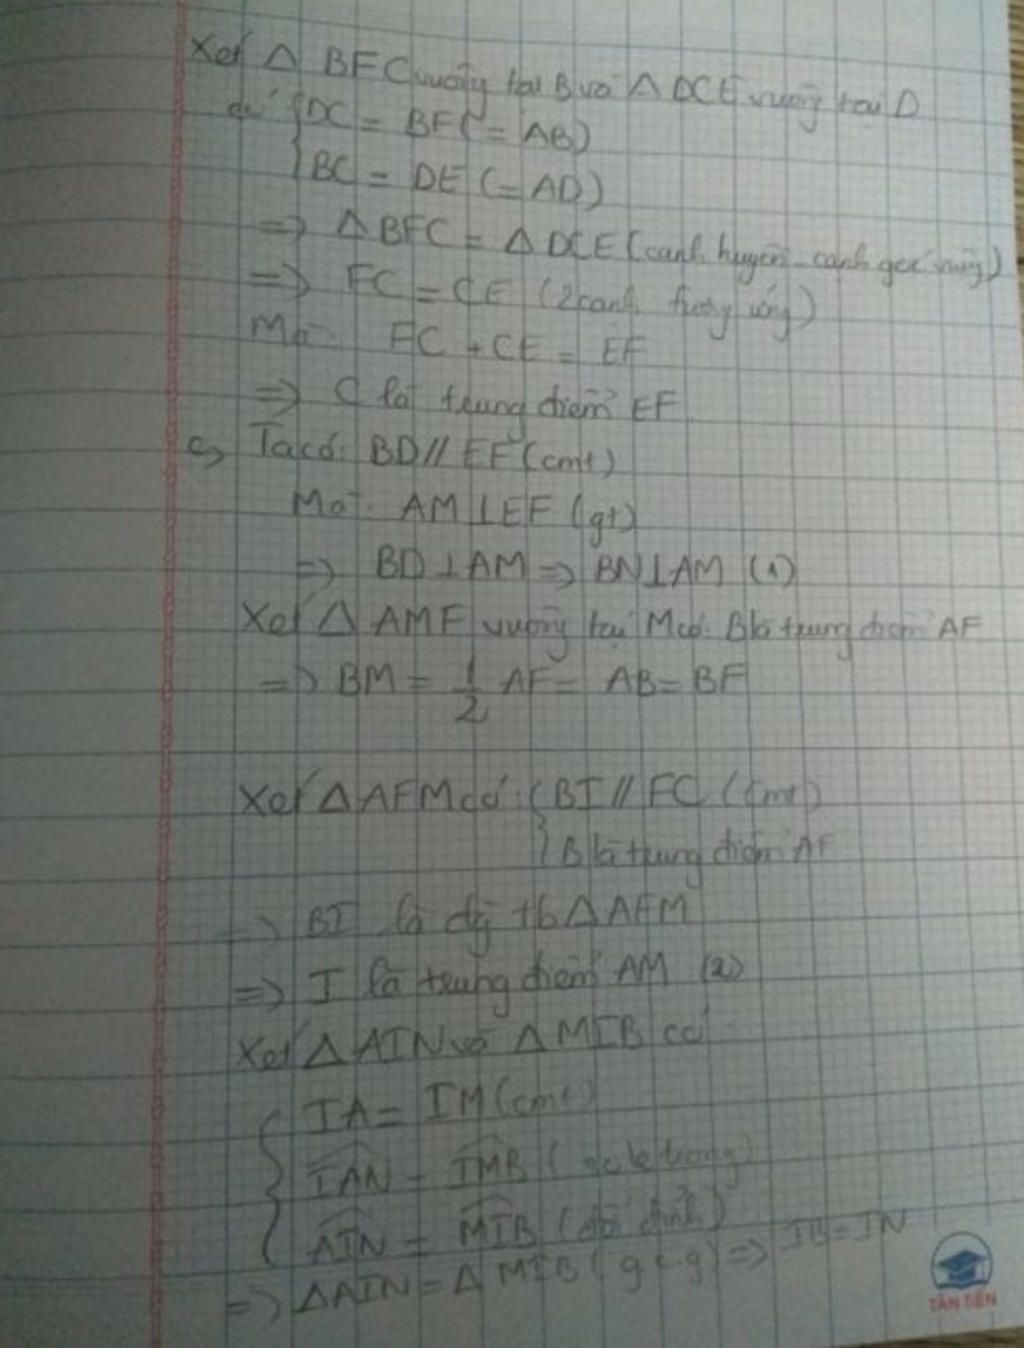 Xét Δ BFC vuông tại B và Δ DCE vuông tại D
có { DC = BF (= AB)
BC = DE (= AD)
=> Δ BFC = Δ DCE (cạnh huyền - cạnh góc vuông)
=> FC = CE (2 cạnh tương ứng)
Mà: FC + CE = EF
=> C là trung điểm EF
c, Ta có: BD // EF (cmt)
Mà: AM ⊥ EF (gt)
=> BD ⊥ AM => BN ⊥ AM (1)
Xét Δ AMF vuông tại M có: B là trung điểm AF
=> BM = 1/2 AF = AB = BF
Xét Δ AFM có: { BI // FC (cmt)
B là trung điểm AF
=> BI là đg tb Δ AFM
=> I là trung điểm AM (2)
Xét Δ AIN và Δ MIB có
{ IA = IM (cmt)
IAN = IMB (so le trong)
AIN = MIB (đối đỉnh)
=> Δ AIN = Δ MIB (g.c.g) => IB = IN
TÂN TIẾN